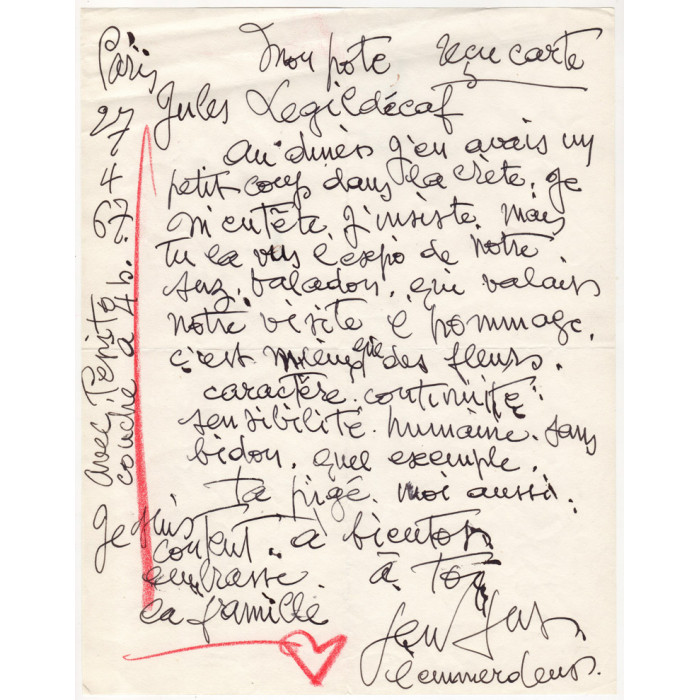 Paris
27
4
67
Mon pote reçu carte
Jules Legildécaf
au diner j'en avais un
petit coup dans la crète. je
m'entête. j'insiste. mais
tu la vus l'expo de notre
suz. baladon. que valais
notre visite e hommage.
c'est mieux que des fleurs.
caractère. continuité.
sensibilité. humaine. sans
bidon. quel exemple.
ta pigé. moi aussi.
Je suis
content. à bientot
embrasse. à toi
la famille
Gen Jas.
l'emmerdeus.
avec Pépito
couché à 4 h.